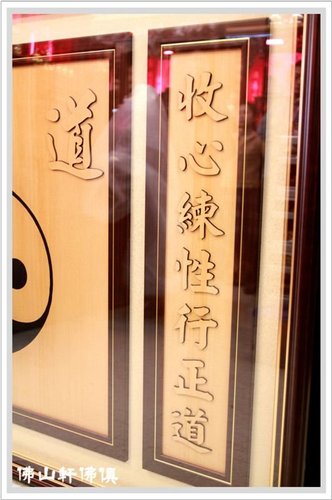 道
收心練性行正道
佛山軒佛俱